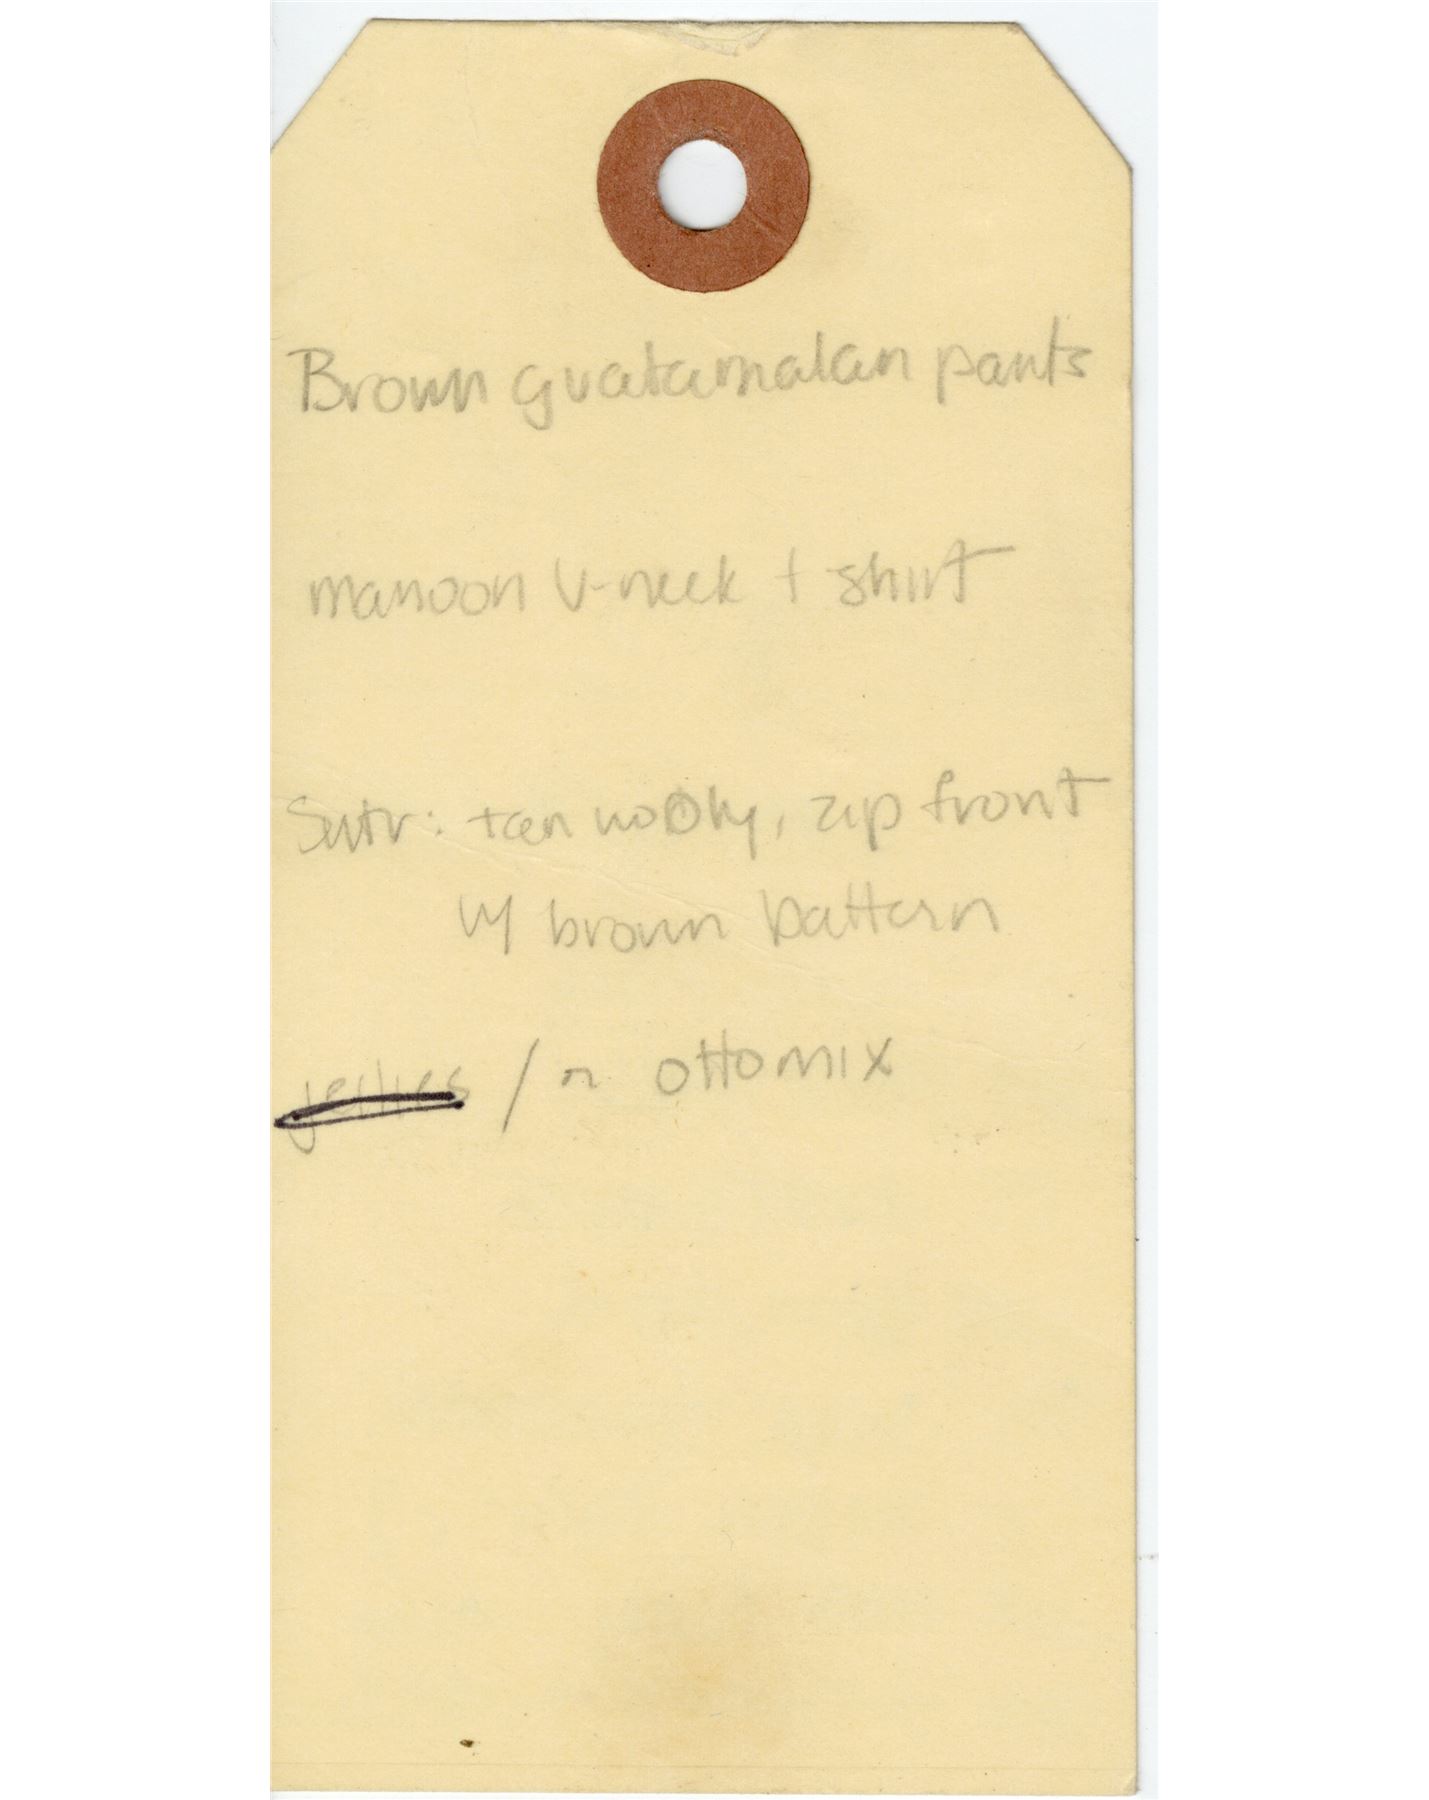 Brown guatamalan pants
maroon V-neck t shirt
Swtr: tan woolly, zip front
w/ brown pattern
jellies / ottomix